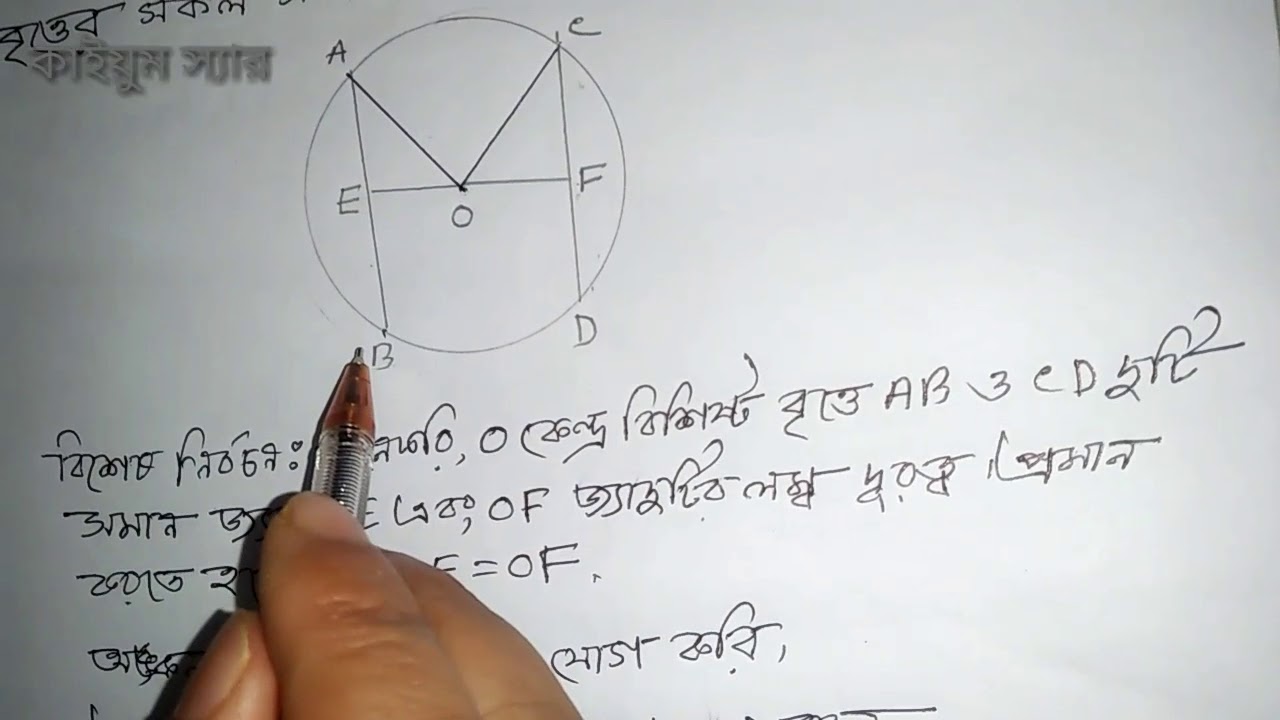 বৃত্তের সকল
কাইয়ুম স্যার
A
C
E
F
O
B
D
বিশেষ নির্বচনঃ করি, O কেন্দ্র বিশিষ্ট বৃত্তে AB ও CD দুটি
সমান এবং OF জ্যাদুটির লম্ব দুরত্ব। প্রমান
করতে = OF.
যোগ করি,